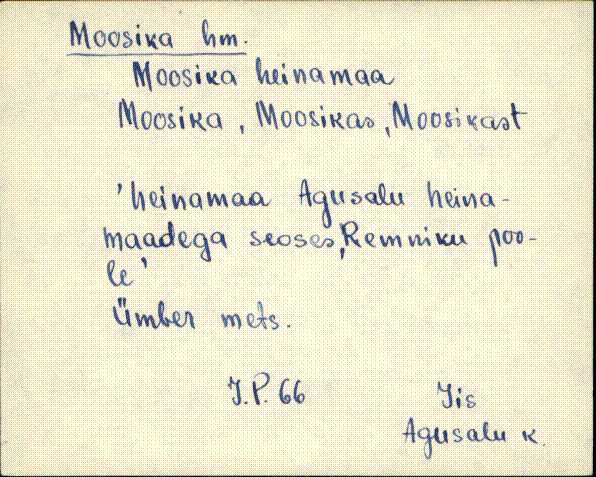 Moosika hm.
Moosika heinamaa
Moosika, Moosikas, Moosikast
'heinamaa Agusalu heina-
maadega seoses, Remniku poo-
le'
Ümber mets.
J.P. 66
Iis
Agusalu k.